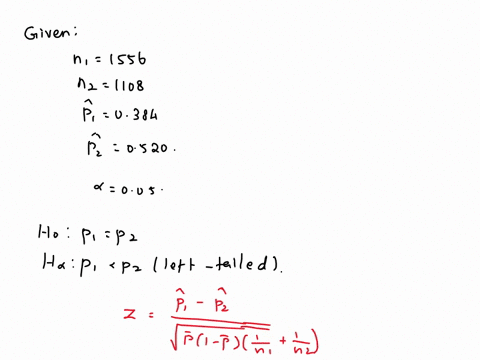 Given:
n₁ = 1556
n₂ = 1108
p̂₁ = 0.384
p̂₂ = 0.520.
α = 0.05.
H₀: p₁ = p₂
Hα: p₁ < p₂ (left-tailed).
z = (p̂₁ - p̂₂) / √(p̄(1-p̄)(1/n₁ + 1/n₂))